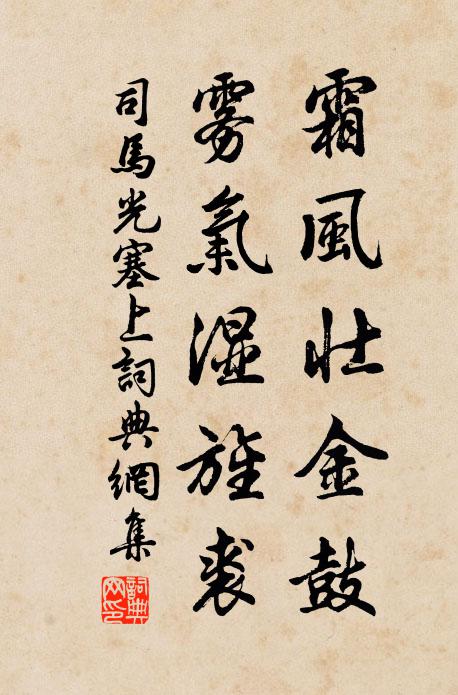 霜風壯金鼓
雾氣湿旌裘
司馬光塞上詞典網集
詞典网印